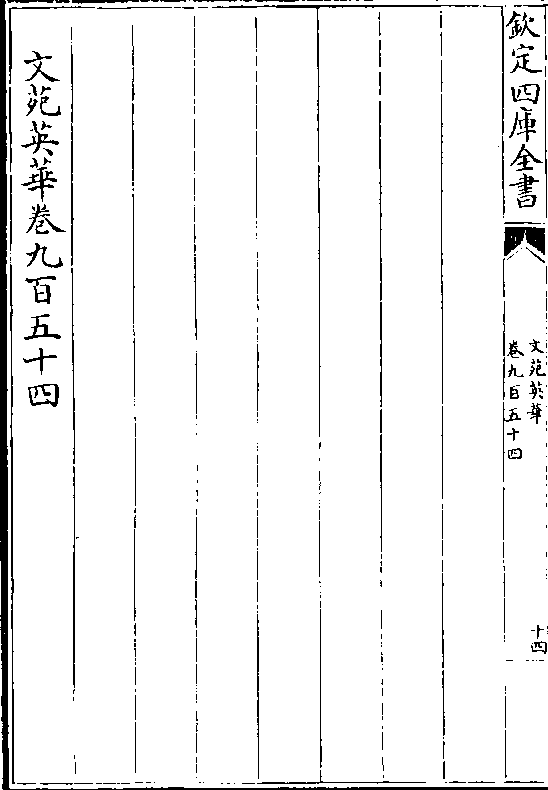 欽定四庫全書
文苑英華
卷九百五十四
十四
文苑英華卷九百五十四